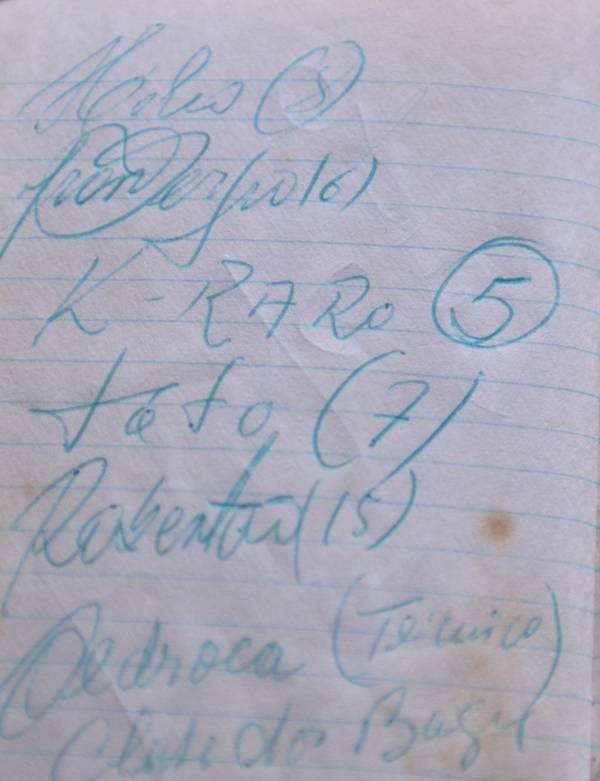 Hélio (8)
(6)
K-RARo (5)
tato (7)
Robertão (15)
Pedroca (Técnico)
Clube do Bagu